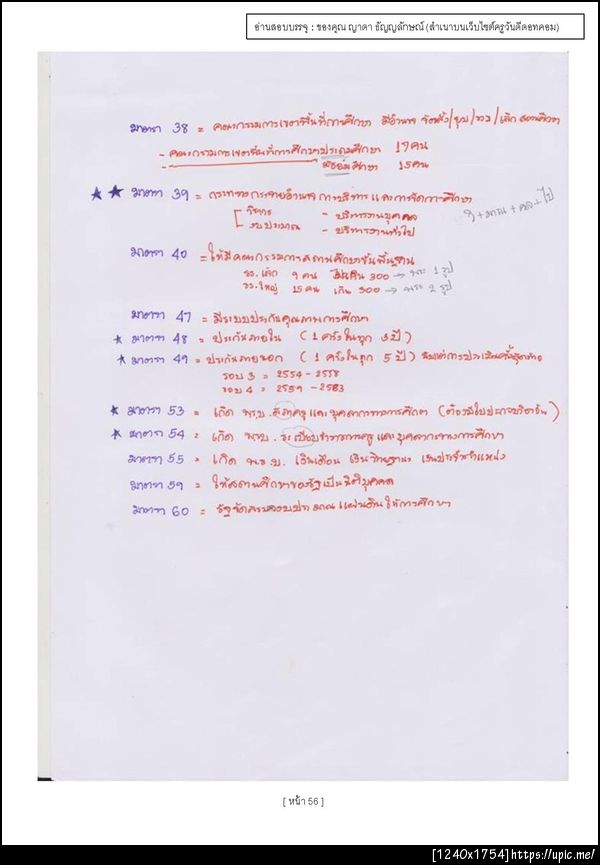 อ่านสอบบรรจุ : ของคุณ ญาดา ธัญญลักษณ์ (สำเนาบนเว็บไซต์ครูวันดีดอทคอม)
มาตรา 38 = คณะกรรมการเขตพื้นที่การศึกษา มีอำนาจ จัดตั้ง/ยุบ/รวม/เลิก สถานศึกษา
- คณะกรรมการเขตพื้นที่การศึกษาประถมศึกษา 17 คน
- มัธยมศึกษา 15 คน
มาตรา 39 = กระทรวงกระจายอำนาจ การบริหาร และการจัดการศึกษา
วิชาการ - บริหารงานบุคคล
งบประมาณ - บริหารงานทั่วไป
มาตรา 40 = ให้มีคณะกรรมการสถานศึกษาขั้นพื้นฐาน
รร.เล็ก 9 คน ไม่เกิน 300 → พระ 1 รูป
รร.ใหญ่ 15 คน เกิน 300 → พระ 2 รูป
มาตรา 47 = มีระบบประกันคุณภาพการศึกษา
มาตรา 48 = ประกันภายใน (1 ครั้งในทุก 3 ปี)
มาตรา 49 = ประกันภายนอก (1 ครั้งในทุก 5 ปี) นับแต่การประเมินครั้งสุดท้าย
รอบ 3 = 2554 - 2558
รอบ 4 = 2559 - 2563
มาตรา 53 = เกิด พรบ. สภาครู และบุคลากรทางการศึกษา (ต้องมีใบประกอบวิชาชีพ)
มาตรา 54 = เกิด พรบ. ระเบียบข้าราชการครู และบุคลากรทางการศึกษา
มาตรา 55 = เกิด พ.ร.บ. เงินเดือน เงินวิทยฐานะ เงินประจำตำแหน่ง
มาตรา 59 = ให้สถานศึกษาของรัฐเป็นนิติบุคคล
มาตรา 60 = รัฐจัดสรรงบประมาณแผ่นดินให้การศึกษา
[ หน้า 56 ]
[1240x1754]https://upic.me/